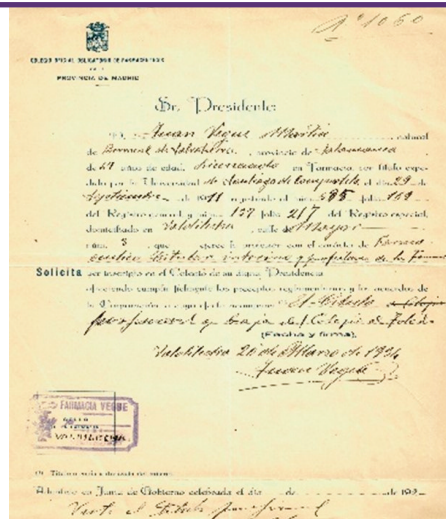 Nº 1060
COLEGIO OFICIAL OBLIGATORIO DE FARMACEUTICOS
DE LA
PROVINCIA DE MADRID
Sr. Presidente:
Juan Vegue Martin natural
de provincia de Salamanca
de 47 años de edad, Licenciado en Farmacia, por título expe-
dido por la Universidad de Santiago de Compostela el día 29 de
Septiembre de 1911 registrado al núm. 585 folio 169
del Registro general y núm. 127 folio 217 del Registro especial,
domiciliado en Valdilecha, calle de Mayor
núm. 3, que ejerce la profesion con el carácter de Farma-
ceutico titular interino y
Solicita ser inscripto en el Colegio de su digna Presidencia
ofreciendo cumplir fielmente los preceptos reglamentarios y los acuerdos de
la Corporación a cuyo efecto acompaña El titulo
profesional y baja del Colegio de Toledo
(Fecha y firma),
Valdilecha 26 de Marzo de 1924
Juan Vegue
FARMACIA VEGUE
VALDILECHA
Admitido en Junta de Gobierno celebrada el día de de 192
Visto el título profesional